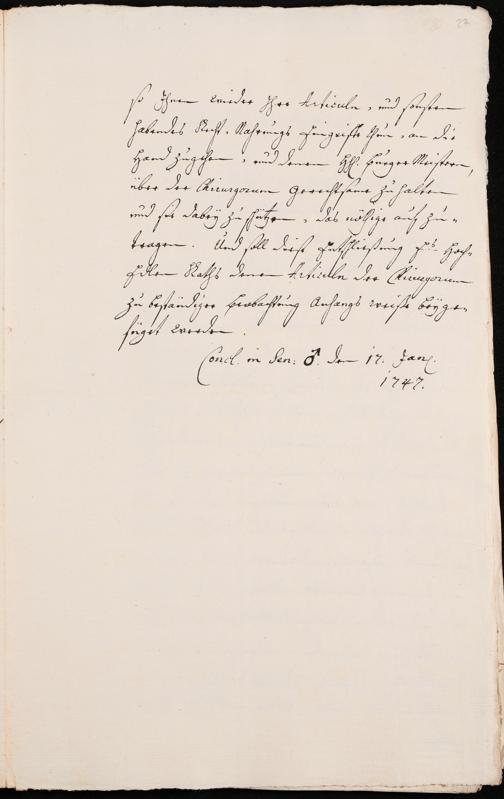 22
so Ihnen wieder Ihre Articuln, und sonsten
habendes Recht, Nahrungs Eingriffe thun, an die
Hand zugehen, und denen HH. Burger Meistern,
über der Chirurgorum Gerechtsame zu halten
und sie dabey zu schützen, das nöthige auf zu-
tragen. Und soll diese Entschließung Es. Hoch-
Edlen Raths denen Articuln der Chirurgorum
zu beständiger beobachtung Anhangs weiße beyge-
füget werden.
Concl. in Sen: ♂. den 17. Jan.
1747.